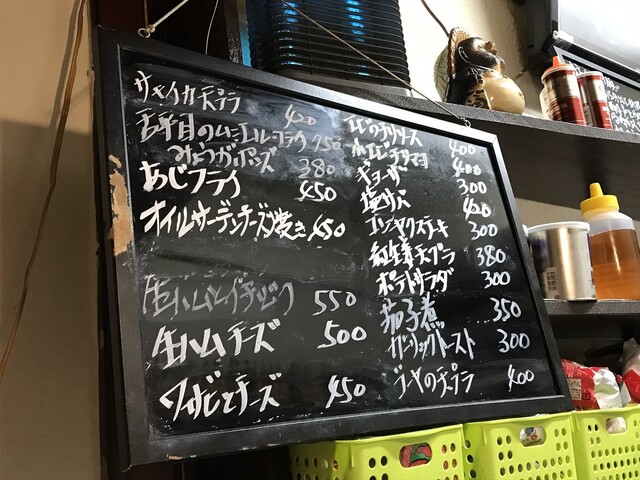 サキイカ天プラ 420
舌平目のムニエル フライ 750
みょうがポンズ 380
あじフライ 450
オイルサーデンチーズ焼き 450
生ハム 550
生ハムチーズ 500
ワサビとチーズ 450
エビのチリソース 400
小エビチリマヨ 400
ギョーザ 300
塩サバ 420
コンニャクステーキ 300
紅生姜天プラ 380
ポテトサラダ 300
茄子煮 350
ガーリックトースト 300
ゴーヤの天プラ 400